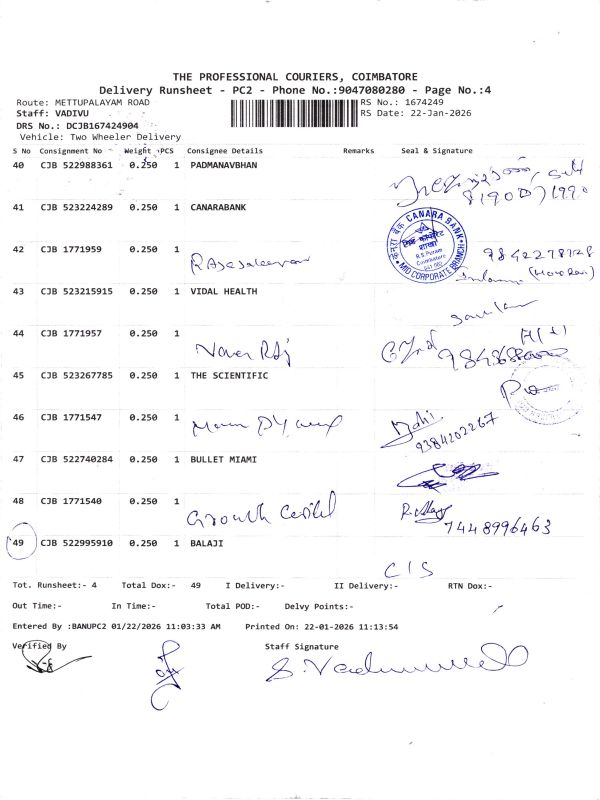 THE PROFESSIONAL COURIERS, COIMBATORE
Delivery Runsheet - PC2 - Phone No.:9047080280 - Page No.:4
Route: METTUPALAYAM ROAD RS No.: 1674249
Staff: VADIVU RS Date: 22-Jan-2026
DRS No.: DCJB167424904
Vehicle: Two Wheeler Delivery
S No Consignment No Weight PCS Consignee Details Remarks Seal & Signature
40 CJB 522988361 0.250 1 PADMANAVBHAN
41 CJB 523224289 0.250 1 CANARABANK
CANARA BANK
R.S Puram
Coimbatore
MID CORPORATE BRANCH
42 CJB 1771959 0.250 1
9842278728
43 CJB 523215915 0.250 1 VIDAL HEALTH
44 CJB 1771957 0.250 1
45 CJB 523267785 0.250 1 THE SCIENTIFIC
46 CJB 1771547 0.250 1
Mahi
9384202267
47 CJB 522740284 0.250 1 BULLET MIAMI
48 CJB 1771540 0.250 1
Growth
7448996463
49 CJB 522995910 0.250 1 BALAJI
C/S
Tot. Runsheet:- 4 Total Dox:- 49 I Delivery:- II Delivery:- RTN Dox:-
Out Time:- In Time:- Total POD:- Delvy Points:-
Entered By :BANUPC2 01/22/2026 11:03:33 AM Printed On: 22-01-2026 11:13:54
Verified By Staff Signature